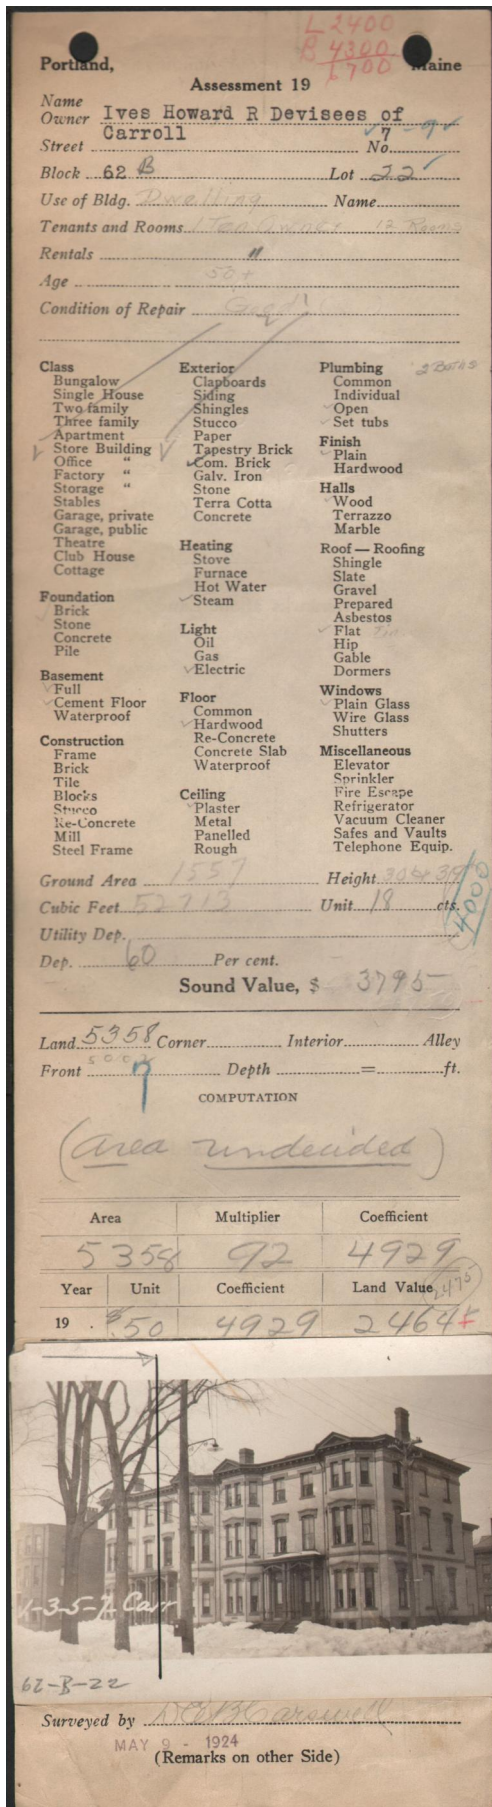 L 2400
B 4300
6700
Portland, Maine
Assessment 19
Name
Owner Ives Howard R Devisees of
Street Carroll No. 7-9
Block 62 B Lot 22
Use of Bldg. Dwelling Name
Tenants and Rooms 1 Ten Owner 12 Rooms
Rentals "
Age 50+
Condition of Repair Good
Class
Bungalow
Single House
Two family
Three family
Apartment
Store Building
Office "
Factory "
Storage "
Stables
Garage, private
Garage, public
Theatre
Club House
Cottage
Foundation
Brick
Stone
Concrete
Pile
Basement
Full
Cement Floor
Waterproof
Construction
Frame
Brick
Tile
Blocks
Stucco
Re-Concrete
Mill
Steel Frame
Exterior
Clapboards
Siding
Shingles
Stucco
Paper
Tapestry Brick
Com. Brick
Galv. Iron
Stone
Terra Cotta
Concrete
Heating
Stove
Furnace
Hot Water
Steam
Light
Oil
Gas
Electric
Floor
Common
Hardwood
Re-Concrete
Concrete Slab
Waterproof
Ceiling
Plaster
Metal
Panelled
Rough
Plumbing 2 Baths
Common
Individual
Open
Set tubs
Finish
Plain
Hardwood
Halls
Wood
Terrazzo
Marble
Roof — Roofing
Shingle
Slate
Gravel
Prepared
Asbestos
Flat Tin
Hip
Gable
Dormers
Windows
Plain Glass
Wire Glass
Shutters
Miscellaneous
Elevator
Sprinkler
Fire Escape
Refrigerator
Vacuum Cleaner
Safes and Vaults
Telephone Equip.
Ground Area 1557 Height
Cubic Feet 52713 Unit 18 cts.
4000
Utility Dep.
Dep. 60 Per cent.
Sound Value, $ 3795
Land 5358 Corner Interior Alley
Front Depth = ft.
7
COMPUTATION
(Area undecided)
Area Multiplier Coefficient
5358 92 4929
Year Unit Coefficient Land Value 2475
19 . $.50 4929 2464
1-3-5-7 Carr
62-B-22
Surveyed by
MAY 9 - 1924
(Remarks on other Side)